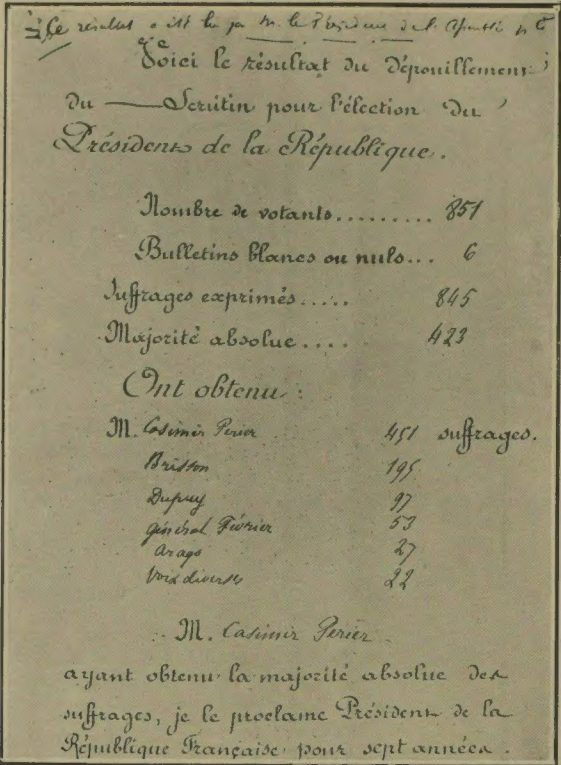 Ce résultat a été lu par M. le Président de l'
Voici le résultat du dépouillement
du Scrutin pour l'élection du
Président de la République.
Nombre de votants......... 851
Bulletins blancs ou nuls... 6
Suffrages exprimés..... 845
Majorité absolue.... 423
Ont obtenu:
M. Casimir Perier 451 suffrages.
Brisson 195
Dupuy 97
général Février 53
arago 27
Voix diverses 22
M. Casimir Perier
ayant obtenu la majorité absolue des
suffrages, je le proclame Président de la
République Française pour sept années.